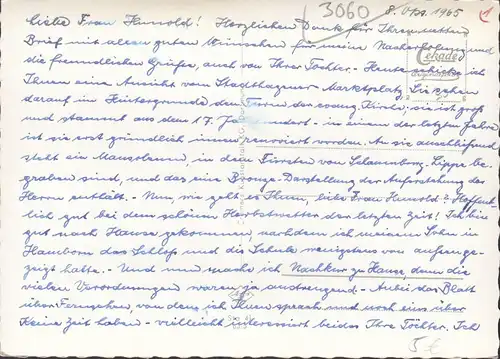 3060
8. Okt. 1965
Liebe Frau Hunold! Herzlichen Dank für Ihren netten
Brief mit allen guten Wünschen für meine Nacherholung und
die freundlichen Grüße, auch von Ihrer Tochter. - Heute schicke ich
Ihnen eine Ansicht vom Stadthagener Marktplatz. Sie sehen
darauf im Hintergrunde den Turm der evang. Kirche; sie ist groß
und stammt aus dem 17. Jahrhundert - in einem der letzten Jahre
ist sie erst gründlich innen renoviert worden. An sie anschließend
steht ein Mausoleum, in dem Fürsten von Schaumburg-Lippe be-
graben sind, und das eine Bronze-Darstellung der Auferstehung des
Herrn enthält. - Nun, wie geht es Ihnen, liebe Frau Hunold? Hoffent-
lich gut bei dem schönen Herbstwetter der letzten Zeit! Ich bin
gut nach Hause gekommen, nachdem ich meinem Sohn in
Hamborn das Schloß und die Schule wenigstens von außen ge-
zeigt hatte. - Und nun mache ich Nachkur zu Hause, denn die
vielen Verordnungen waren ja anstrengend. - Anbei das Blatt
über Fernsehen, von dem ich Ihnen sprach und noch eins über
Keine Zeit haben - vielleicht interessiert beides Ihre Töchter. Ich
5 €